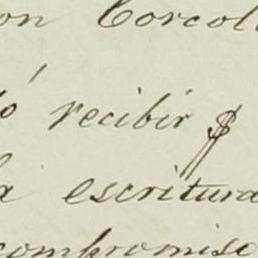 on Corcol
ó recibir $
a escritura
compromiso